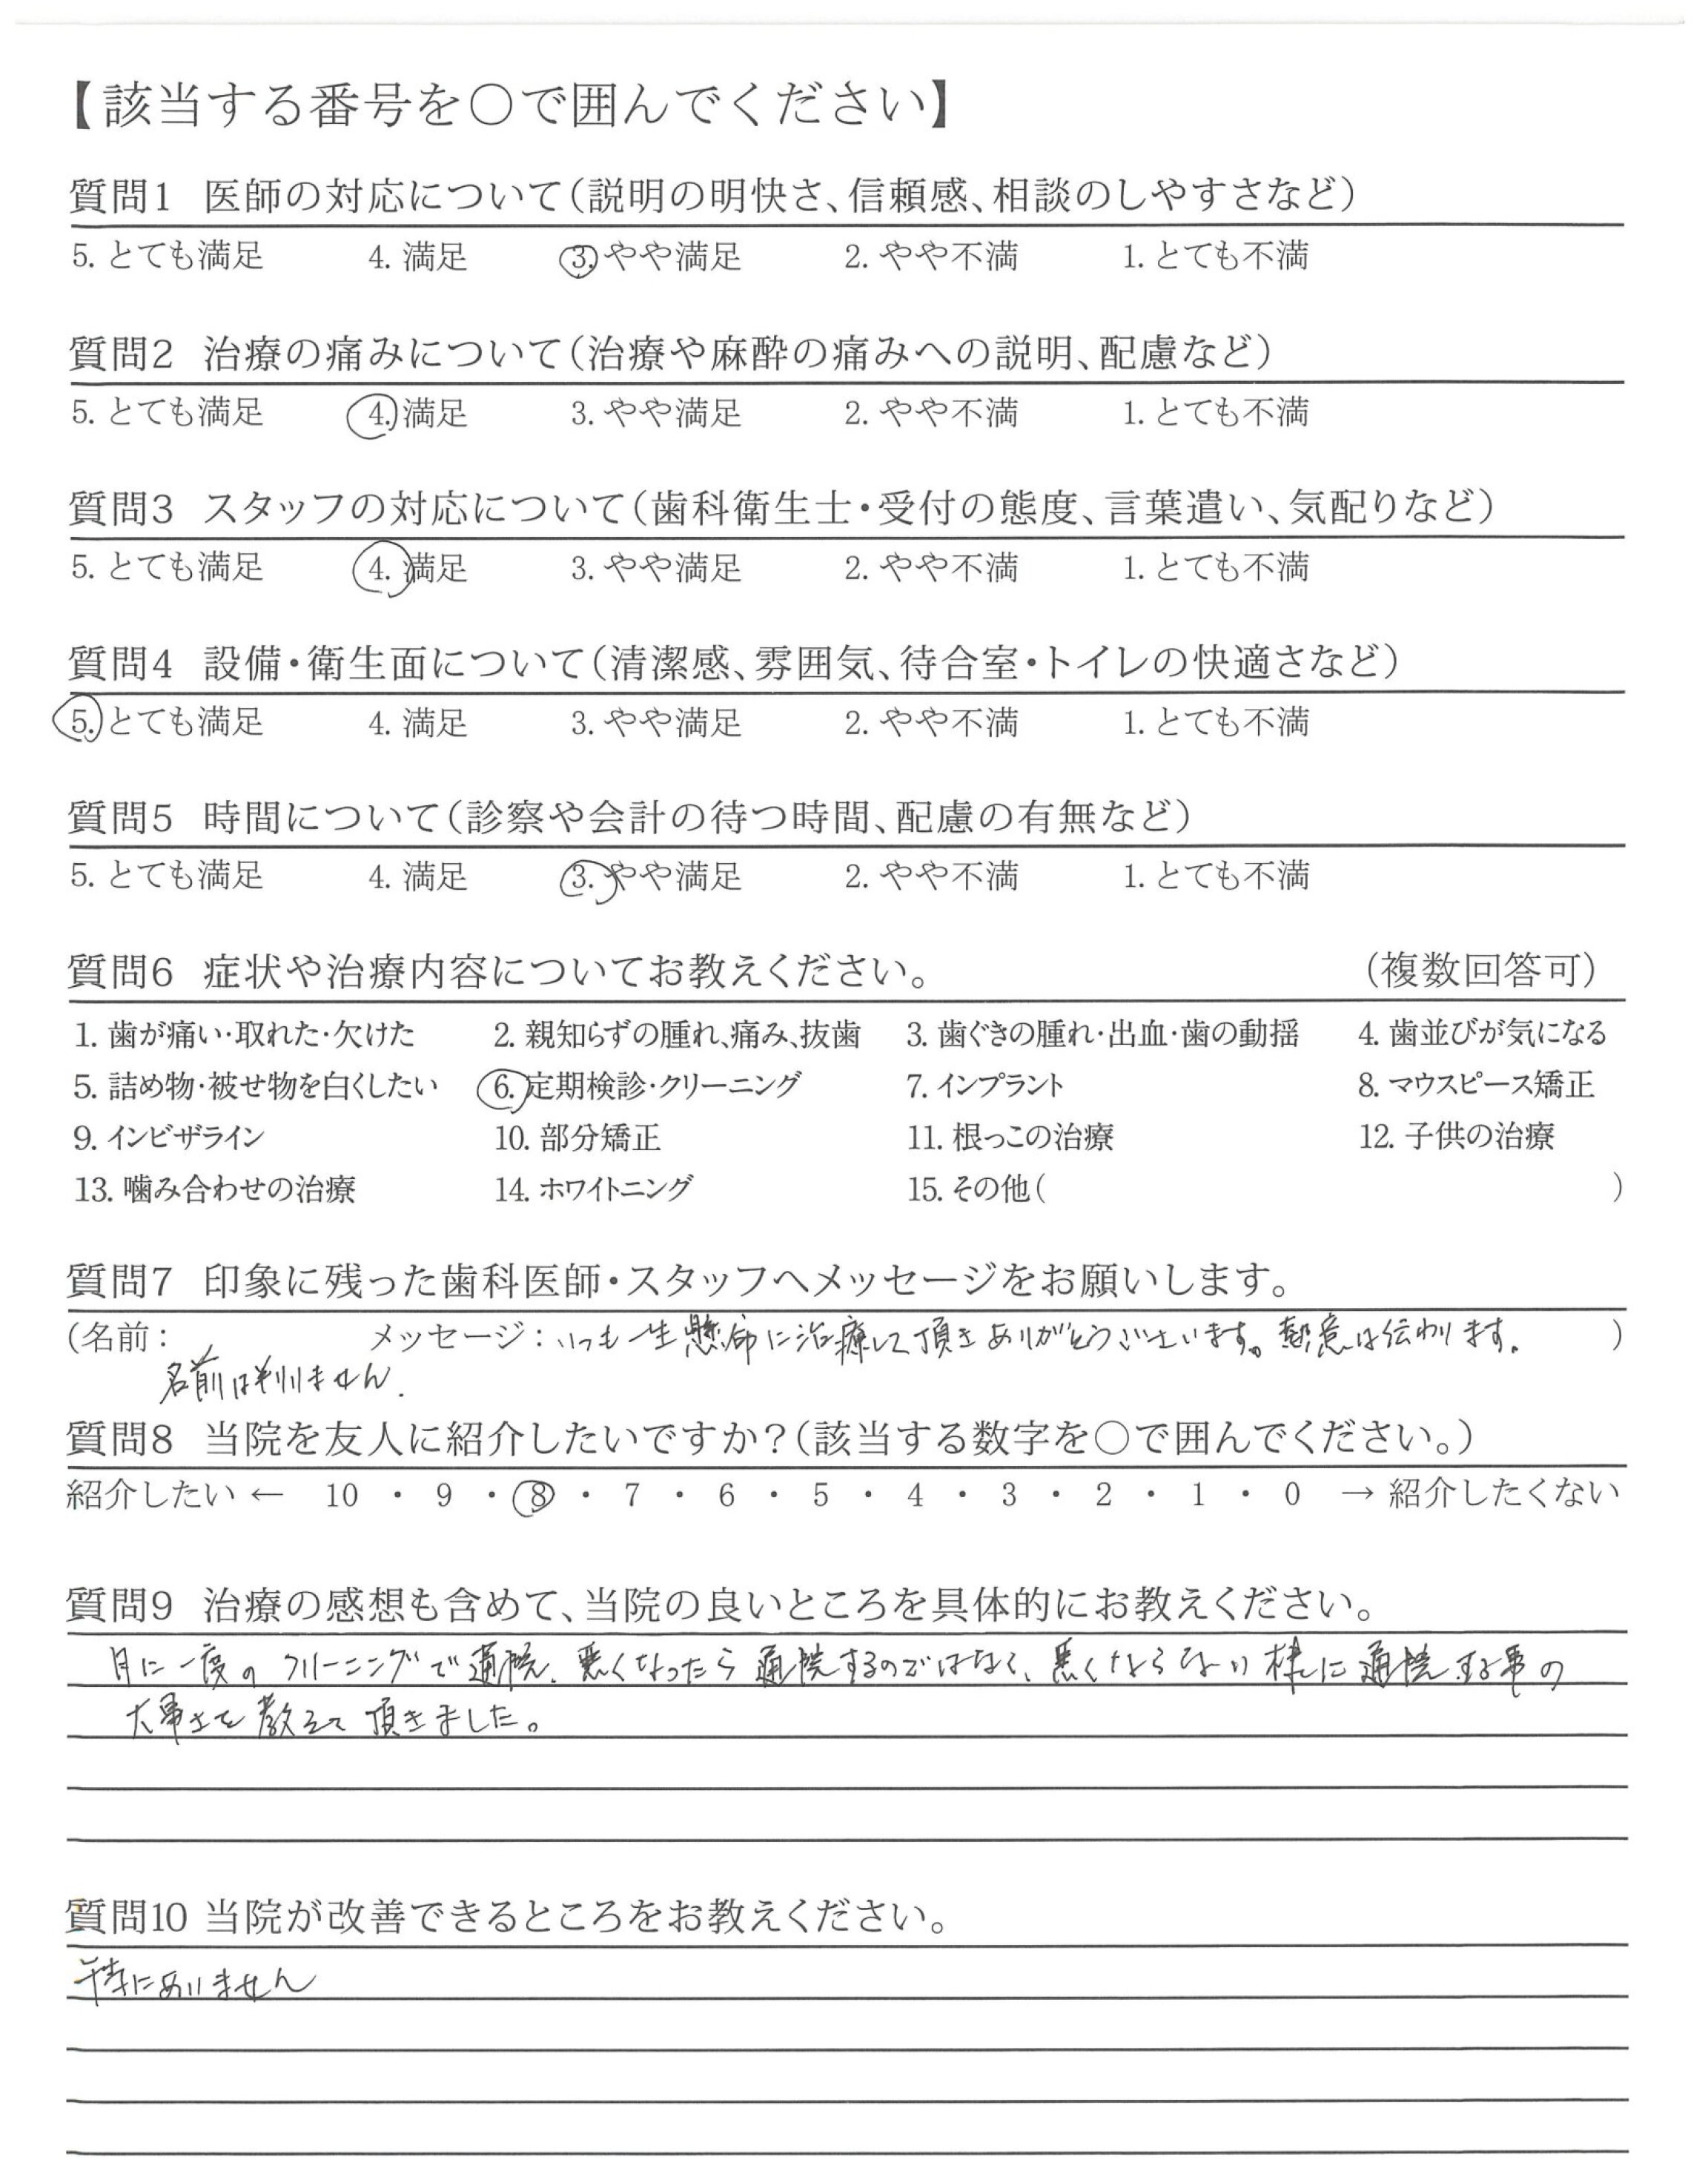 【該当する番号を○で囲んでください】
質問1 医師の対応について(説明の明快さ、信頼感、相談のしやすさなど)
5. とても満足 4. 満足 3. やや満足 2. やや不満 1. とても不満
質問2 治療の痛みについて(治療や麻酔の痛みへの説明、配慮など)
5. とても満足 4. 満足 3. やや満足 2. やや不満 1. とても不満
質問3 スタッフの対応について(歯科衛生士・受付の態度、言葉遣い、気配りなど)
5. とても満足 4. 満足 3. やや満足 2. やや不満 1. とても不満
質問4 設備・衛生面について(清潔感、雰囲気、待合室・トイレの快適さなど)
5. とても満足 4. 満足 3. やや満足 2. やや不満 1. とても不満
質問5 時間について(診察や会計の待つ時間、配慮の有無など)
5. とても満足 4. 満足 3. やや満足 2. やや不満 1. とても不満
質問6 症状や治療内容についてお教えください。 (複数回答可)
1. 歯が痛い・取れた・欠けた 2. 親知らずの腫れ、痛み、抜歯 3. 歯ぐきの腫れ・出血・歯の動揺 4. 歯並びが気になる
5. 詰め物・被せ物を白くしたい 6. 定期検診・クリーニング 7. インプラント 8. マウスピース矯正
9. インビザライン 10. 部分矯正 11. 根っこの治療 12. 子供の治療
13. 噛み合わせの治療 14. ホワイトニング 15. その他( )
質問7 印象に残った歯科医師・スタッフへメッセージをお願いします。
(名前: メッセージ: いつも一生懸命に治療して頂きありがとうございます。熱意は伝わります。 )
名前は判りません.
質問8 当院を友人に紹介したいですか?(該当する数字を○で囲んでください。)
紹介したい ← 10 ・ 9 ・ 8 ・ 7 ・ 6 ・ 5 ・ 4 ・ 3 ・ 2 ・ 1 ・ 0 → 紹介したくない
質問9 治療の感想も含めて、当院の良いところを具体的にお教えください。
月に一度のクリーニングで通院、悪くなったら通院するのではなく、悪くならない様に通院する事の
大事さを教えて頂きました。
質問10 当院が改善できるところをお教えください。
特にありません